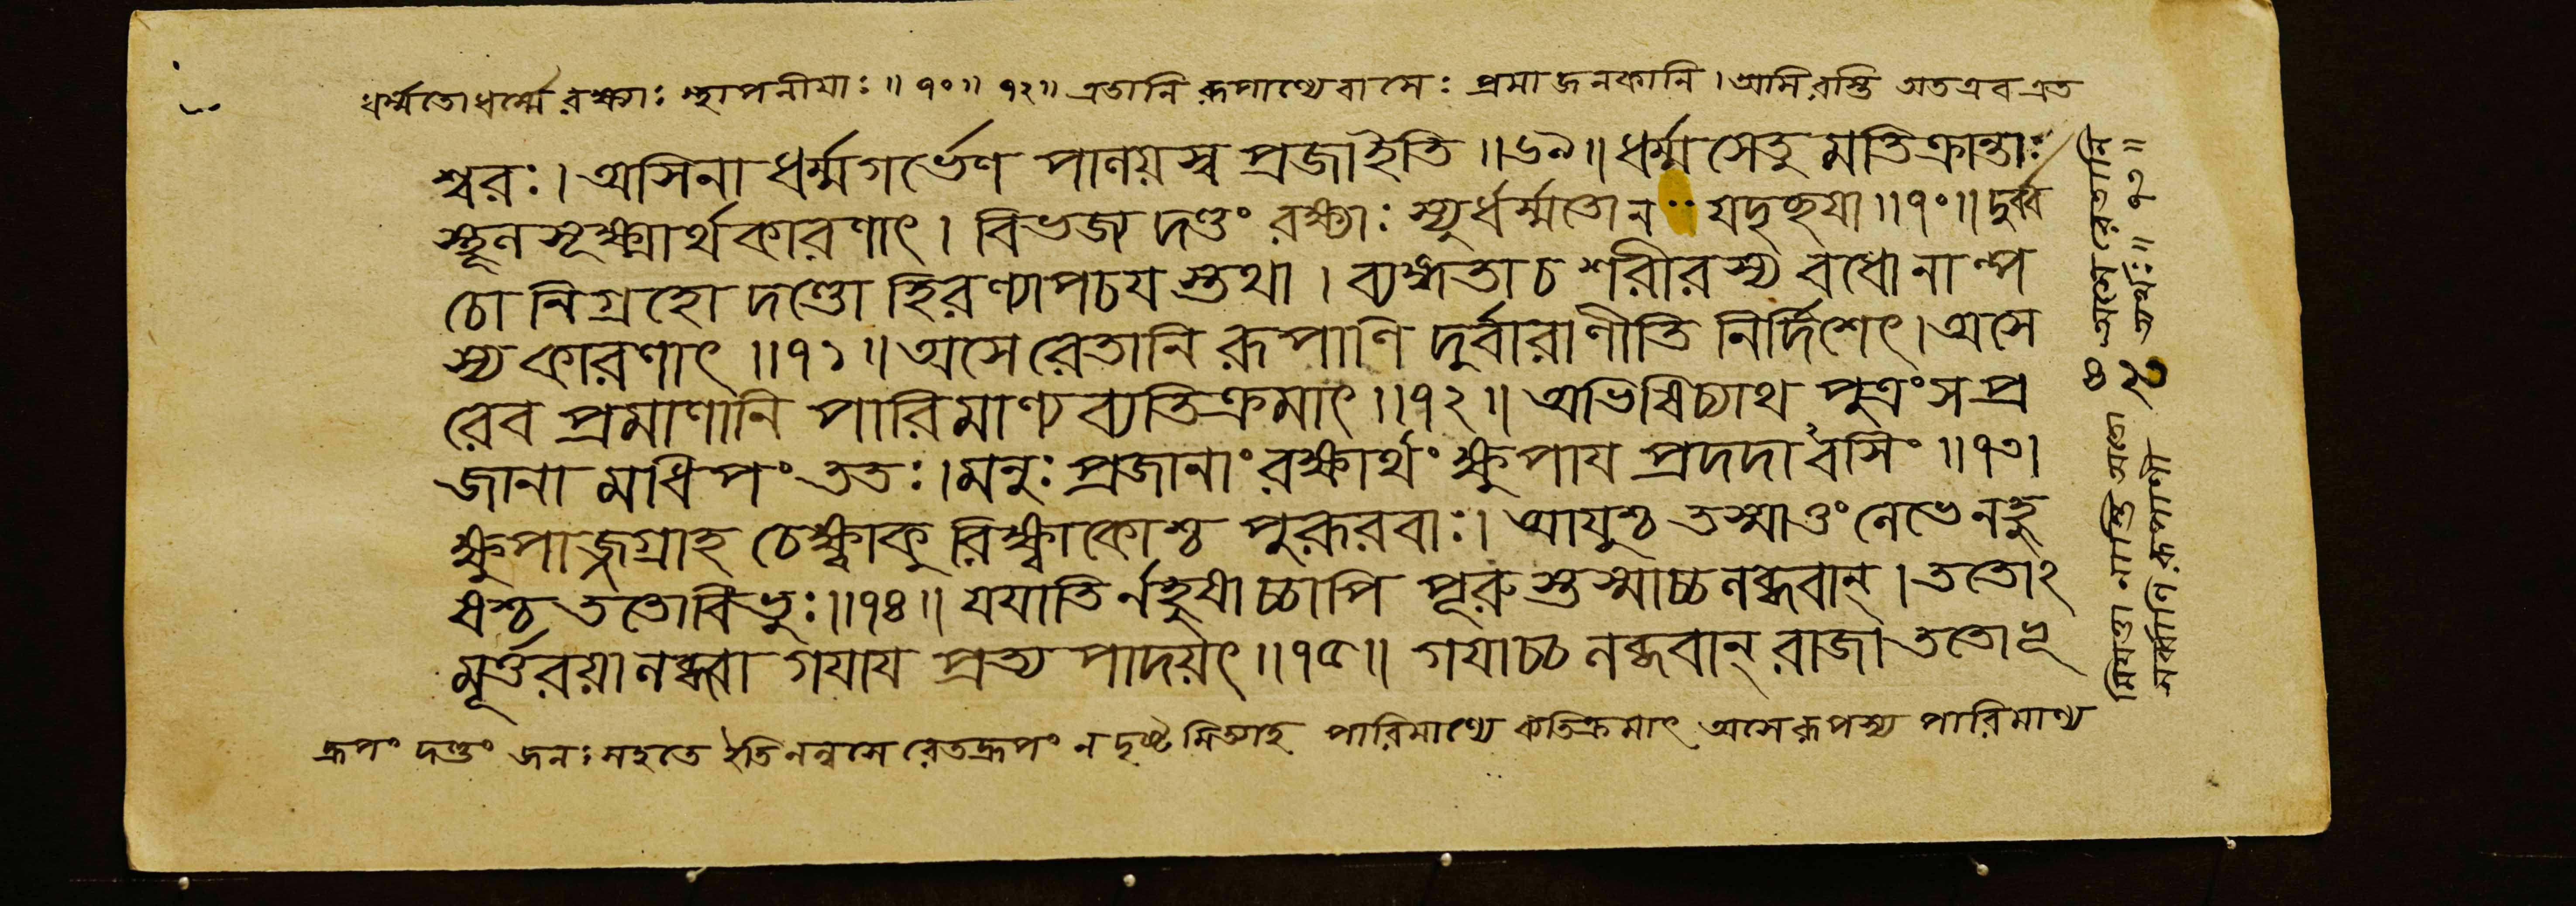 ধর্ম্মতোধর্ম্মে রক্ষ্যাঃ স্থাপনীয়াঃ ॥ ৭০ ॥ ৭২ ॥ এতানি রূপাণ্যেবাসেঃ প্রমাজনকানি । অসিরস্তি অতএব এত
শ্বরঃ । অসিনা ধর্ম্মগর্ভেণ পাণয়স্ব প্রজাইতি ॥ ৬৯ ॥ ধর্ম্মসেতু মতিক্রান্তাঃ
স্থূন সূক্ষ্মার্থকারণাৎ । বিভজ্য দণ্ডং রক্ষ্যাঃ স্যুর্ধর্ম্মতোন যদৃচ্ছযা ॥ ৭০ ॥ দুর্ব্ব
চো নিগ্রহো দণ্ডো হিরণ্যাপচয স্তথা । ব্যঙ্গতা চ শরীরস্য বধোনাল্প
স্য কারণাৎ ॥ ৭১ ॥ অসেরেতানি রূপাণি দুর্বারাণীতি নির্দিশেৎ । অসে
রেব প্রমাণানি পারিমাণ্য ব্যতিক্রমাৎ ॥ ৭২ ॥ অভিষিচ্যাথ পুত্রং স প্র
জানা মধিপং ততঃ । মনুঃ প্রজানাং রক্ষার্থং ক্ষুপায প্রদদাবসিং ॥ ৭৩ ।
ক্ষুপাজ্জগ্রাহ চেক্ষ্বাকু রিক্ষ্বাকোশ্চ পুরূরবাঃ । আযুশ্চ তস্মাত্তং লেভে নহু
ষশ্চ ততোবিভুঃ ॥ ৭৪ ॥ যযাতি র্নহুষাচ্চাপি পূরু স্তস্মাচ্চ লব্ধবান্ । ততোঽ
মূর্ত্তরয়া লব্ধ্বা গযায প্রত্য পাদয়ৎ ॥ ৭৫ ॥ গযাচ্চ লব্ধবান্ রাজা ততোভূ
দ্রূপং দণ্ডং জনঃ সহতে ইতি নন্বসেরেতদ্রূপং ন দৃষ্টমিত্যাহ পারিমাণ্যে ব্যতিক্রমাৎ অসেরূপস্য পারিমাণ্য
মিযত্তা নাস্তি অতো অসেরেতানি
সর্ব্বাণি রূপাণী ত্যর্থঃ ॥ ৭২ ॥